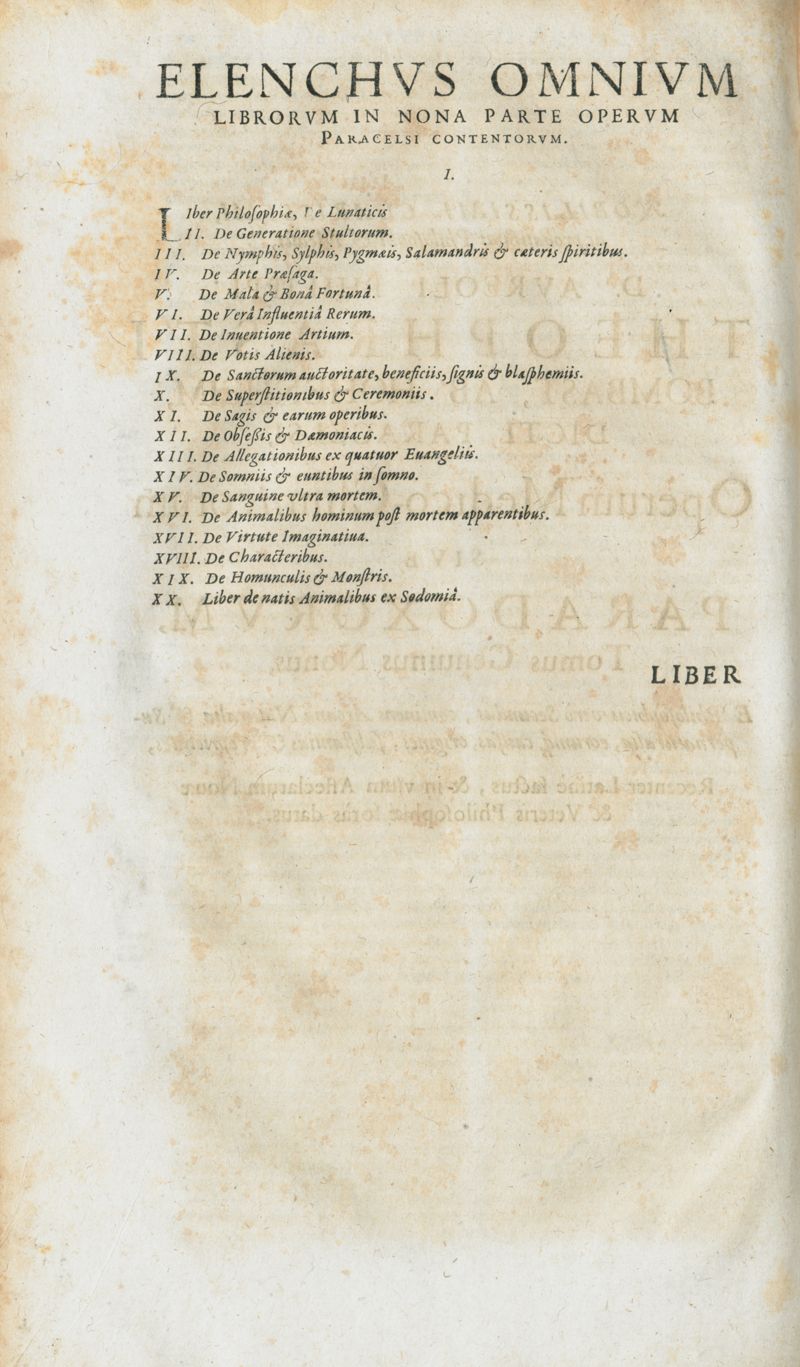 ELENCHVS OMNIVM
LIBRORVM IN NONA PARTE OPERVM
PARACELSI CONTENTORVM.
I.
LIber Philoſophiæ, De Lunaticis
II. De Generatione Stultorum.
III. De Nymphis, Sylphis, Pygmæis, Salamandris & cæteris ſpiritibus.
IV. De Arte Præſaga.
V. De Mala & Bonâ Fortunâ.
VI. De Verâ Influentiâ Rerum.
VII. De Inuentione Artium.
VIII. De Votis Alienis.
IX. De Sanctorum auctoritate, beneficiis, ſignis & blaſphemiis.
X. De Superſtitionibus & Ceremoniis.
XI. De Sagis & earum operibus.
XII. De Obſeßis & Dæmoniacis.
XIII. De Allegationibus ex quatuor Euangeliis.
XIV. De Somniis & euntibus in ſomno.
XV. De Sanguine vltra mortem.
XVI. De Animalibus hominum poſt mortem apparentibus.
XVII. De Virtute Imaginatiua.
XVIII. De Characteribus.
XIX. De Homunculis & Monſtris.
XX. Liber de natis Animalibus ex Sodomiâ.
LIBER